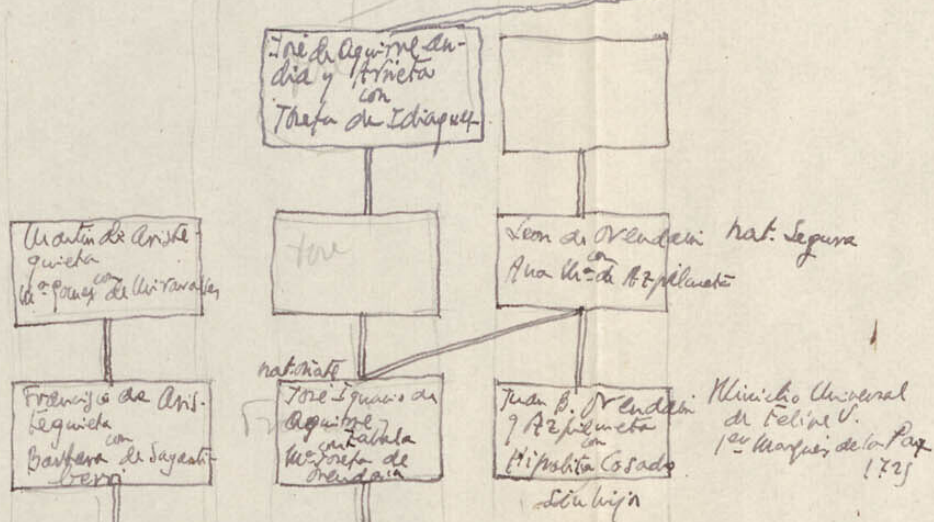 José de Aguirre An-
dia y Arrieta
con
Josefa de Idiaquez
Martin de Ariste-
guieta
con
Mª Gomez de Miravalles
José
León de Orendain
con
Ana Mª de Azpilcueta
nat. Segura
Francisco de Aris-
teguieta
con
Barbara de Sagasti-
berri
nat. Oñate
José Ignacio de
Aguirre Zabala
con
Mª Josefa de
Orendain
Juan B. Orendain
y Azpilcueta
con
Hipolita Casado
Sin hijos
Ministro Universal
de Felipe V.
1er Marqués de la Paz
1725